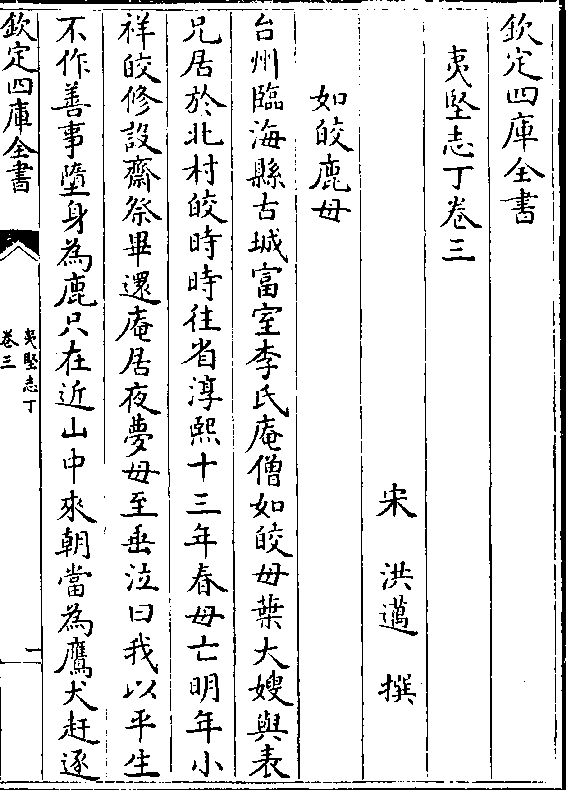 欽定四庫全書
夷堅志丁卷三
宋 洪邁 撰
如皎鹿母
台州臨海縣古城富室李氏庵僧如皎母葉大嫂與表
兄居於北村皎時時往省淳熙十三年春母亡明年小
祥皎修設齋祭畢還庵居夜夢母至垂泣曰我以平生
不作善事墮身為鹿只在近山中來朝當為鷹犬赶逐
欽定四庫全書
夷堅志丁
卷三
一